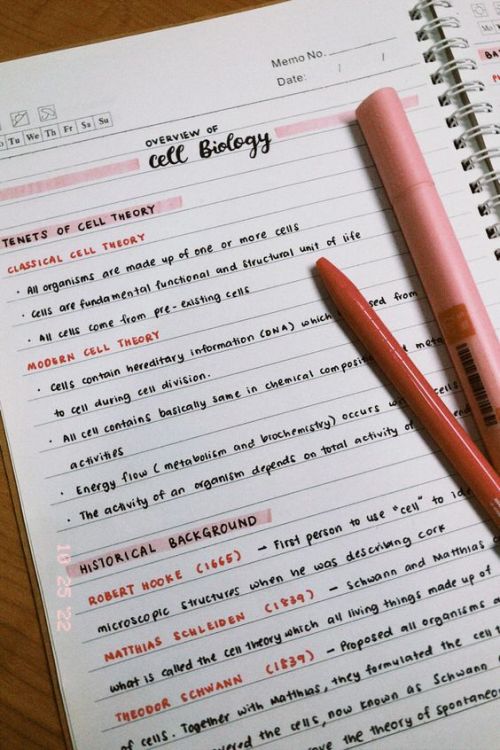 Memo No.
Date: / /
Tu We Th Fr Sa Su
OVERVIEW OF
Cell Biology
TENETS OF CELL THEORY
CLASSICAL CELL THEORY
· All organisms are made up of one or more cells
· Cells are fundamental functional and structural unit of life
· All cells come from pre-existing cells
MODERN CELL THEORY
· Cells contain hereditary information (DNA) which from
to cell during cell division.
· All cell contains basically same in chemical
activities
· Energy flow (metabolism and biochemistry) occurs cells
· The activity of an organism depends on total activity
HISTORICAL BACKGROUND
ROBERT HOOKE (1665) – First person to use "cell" to
microscopic structures when he was describing cork
MATTHIAS SCHLEIDEN (1839) – Schwann and Matthias
what is called the cell theory which all living things made up of
THEODOR SCHWANN (1839) – Proposed all organisms
of cells. Together with Matthias, they formulated the cell
the cells, now known as Schwann
the theory of
10 25 '22